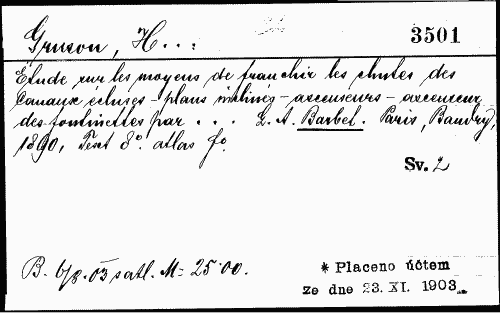 Gruson, H... 3501
Étude sur les moyens de franchir les chutes des
Canaux écluses – plans inclinés – ascenseurs – ascenseur
des fontinettes par ... L. A. Barbet. Paris, Baudry,
1890, Text 8°. atlas fo.
Sv. 2
B. 6/8.03 s atl. M= 25·00.
* Placeno účtem
ze dne 23. XI. 1903